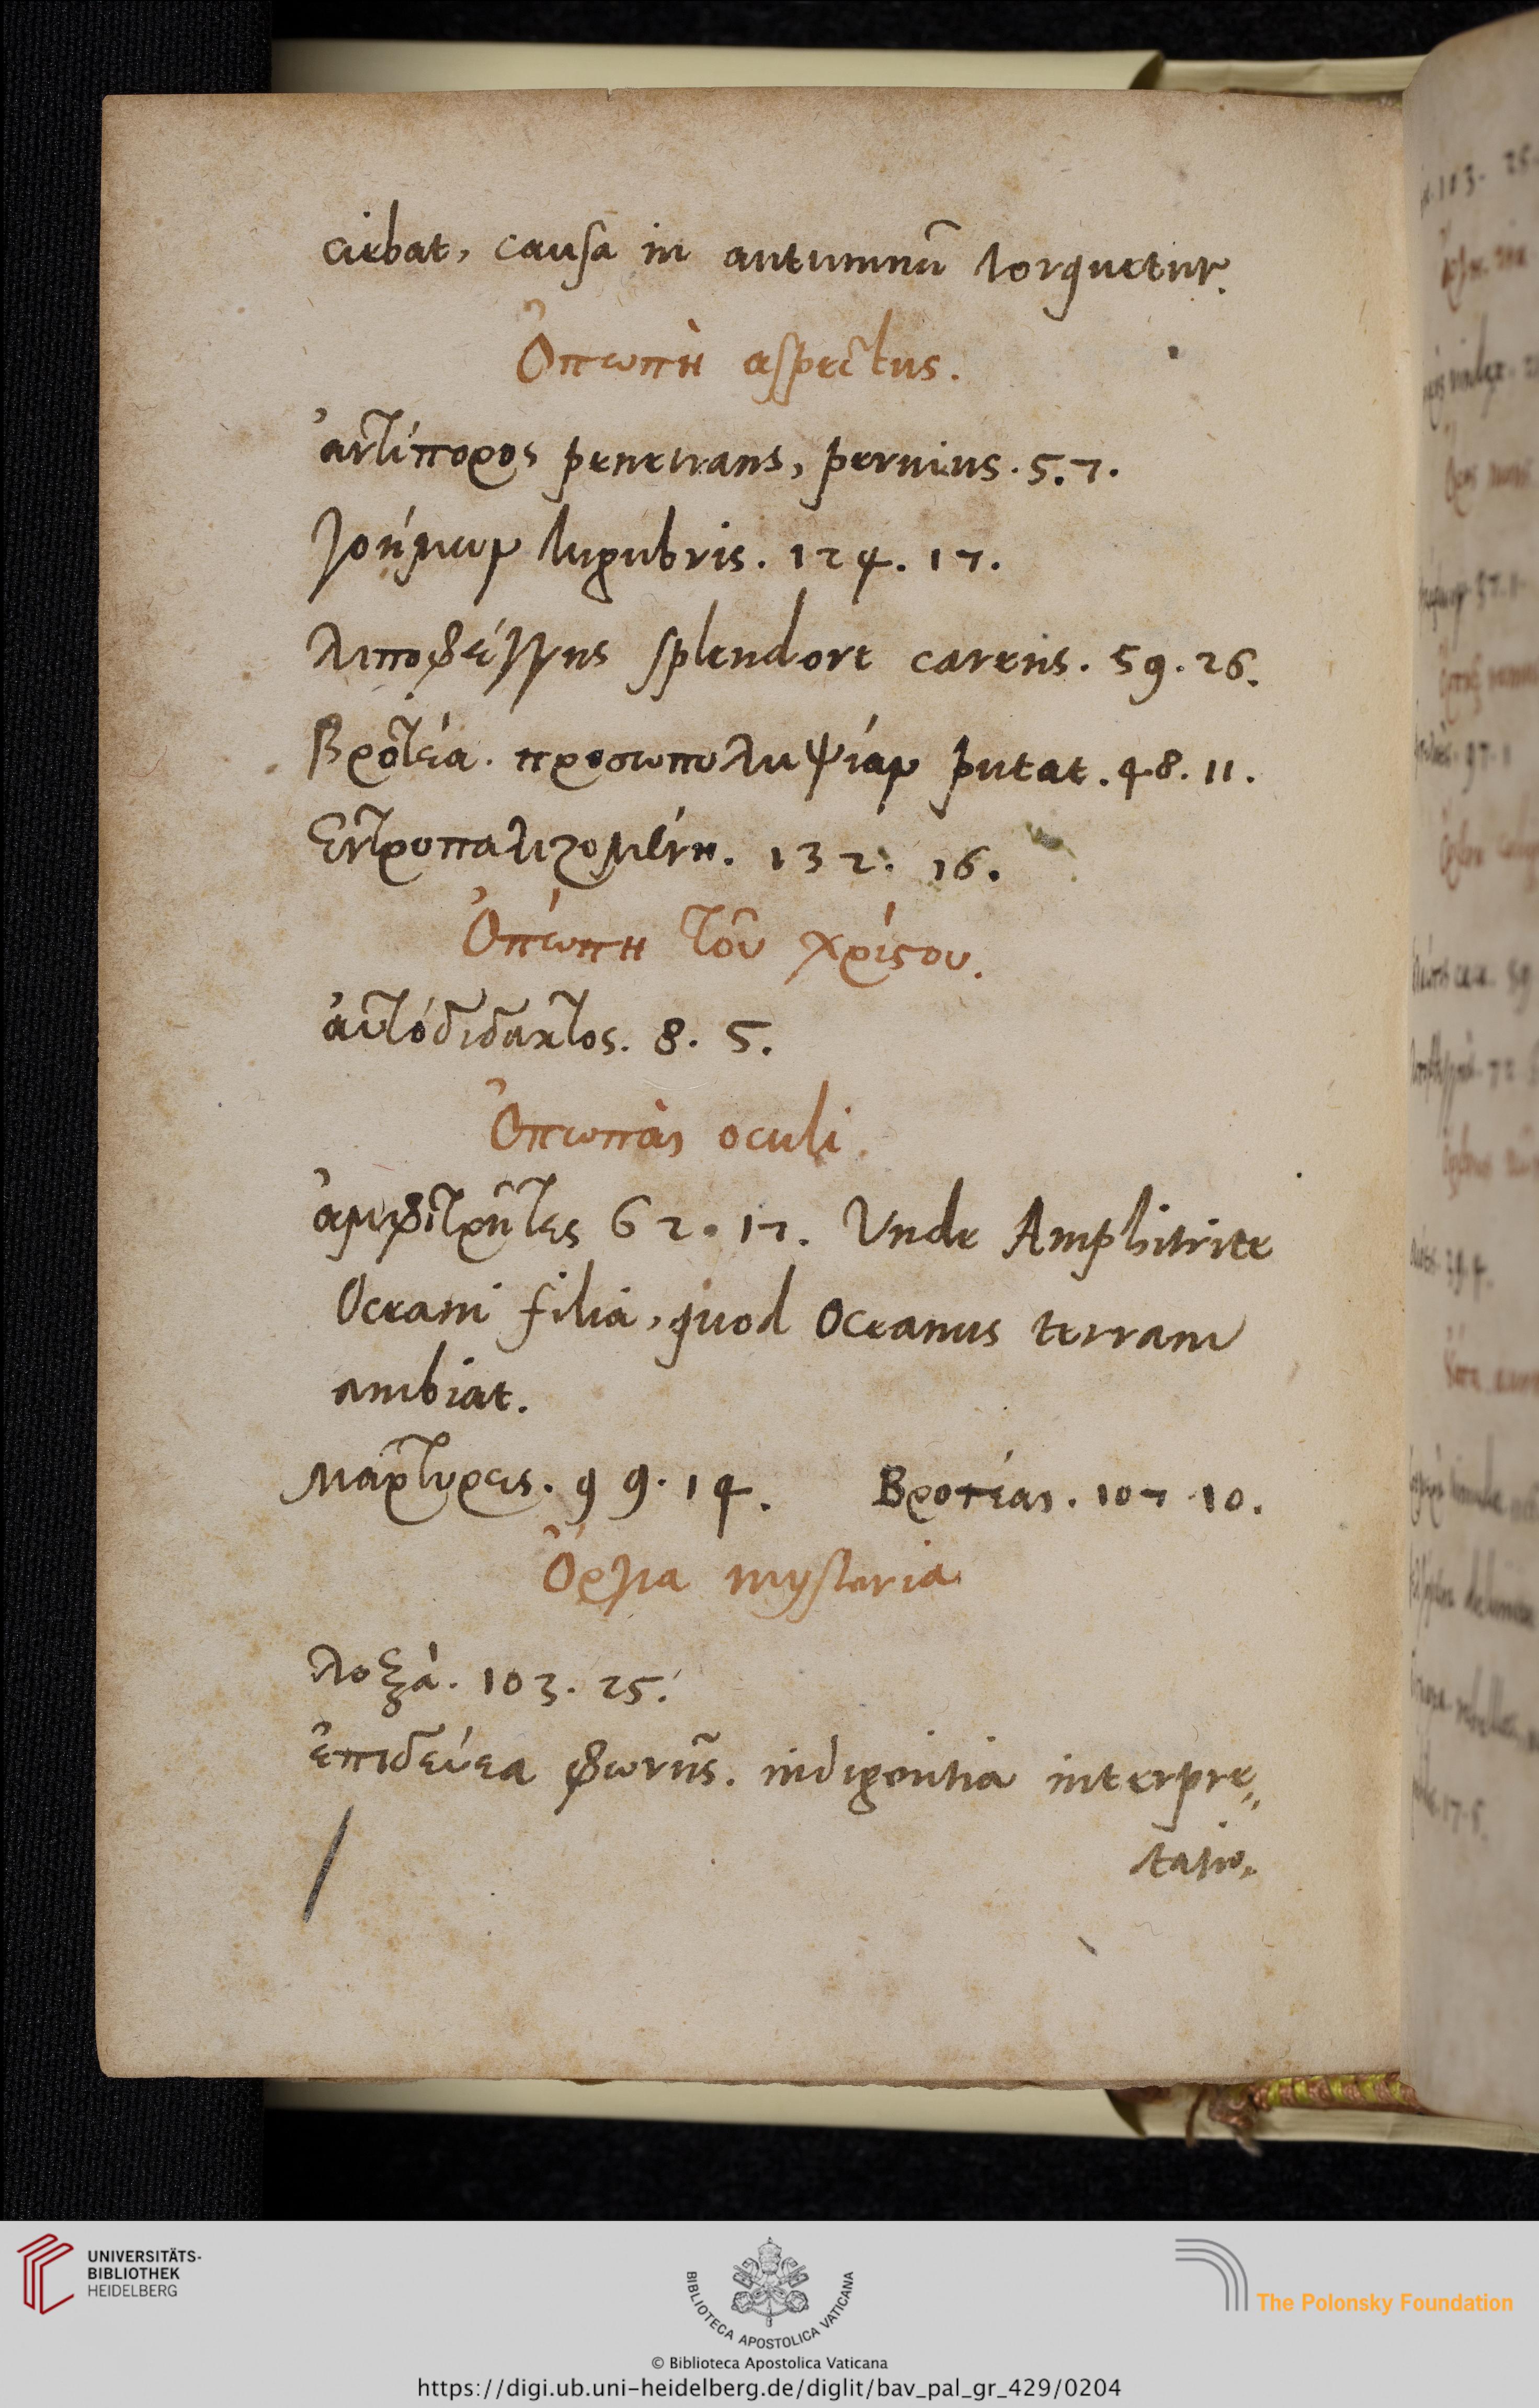 ciebat, causa in autumnũ torquetur.
Ὀπωπὴ aspectus.
ἀντίπορος penetrans, pervius. 5. 7.
γοήμων lugubris. 124. 17.
λιποφέγγης splendore carens. 59. 26.
Βροτέα. προσωποληψίαν putat. 48. 11.
Ἐντροπαλιζομένη. 132. 16.
Ὀπώπη τοῦ χρίστου.
αὐτόδιδακτος. 8. 5.
Ὀπωπαὶ oculi.
ἀμφιτρῆτες 62. 17. Unde Amphitrite
Oceani filia, quod Oceanus terram
ambiat.
Μάρτυρες. 99. 14. Βροτέαι. 107. 10.
Ὄργια mysteria
λοξὰ. 103. 25.
ἐπιδεύεα φωνῆς. indigentia interpre„
tatio„
UNIVERSITÄTS-
BIBLIOTHEK
HEIDELBERG
BIBLIOTECA APOSTOLICA VATICANA
The Polonsky Foundation
© Biblioteca Apostolica Vaticana
https://digi.ub.uni-heidelberg.de/diglit/bav_pal_gr_429/0204